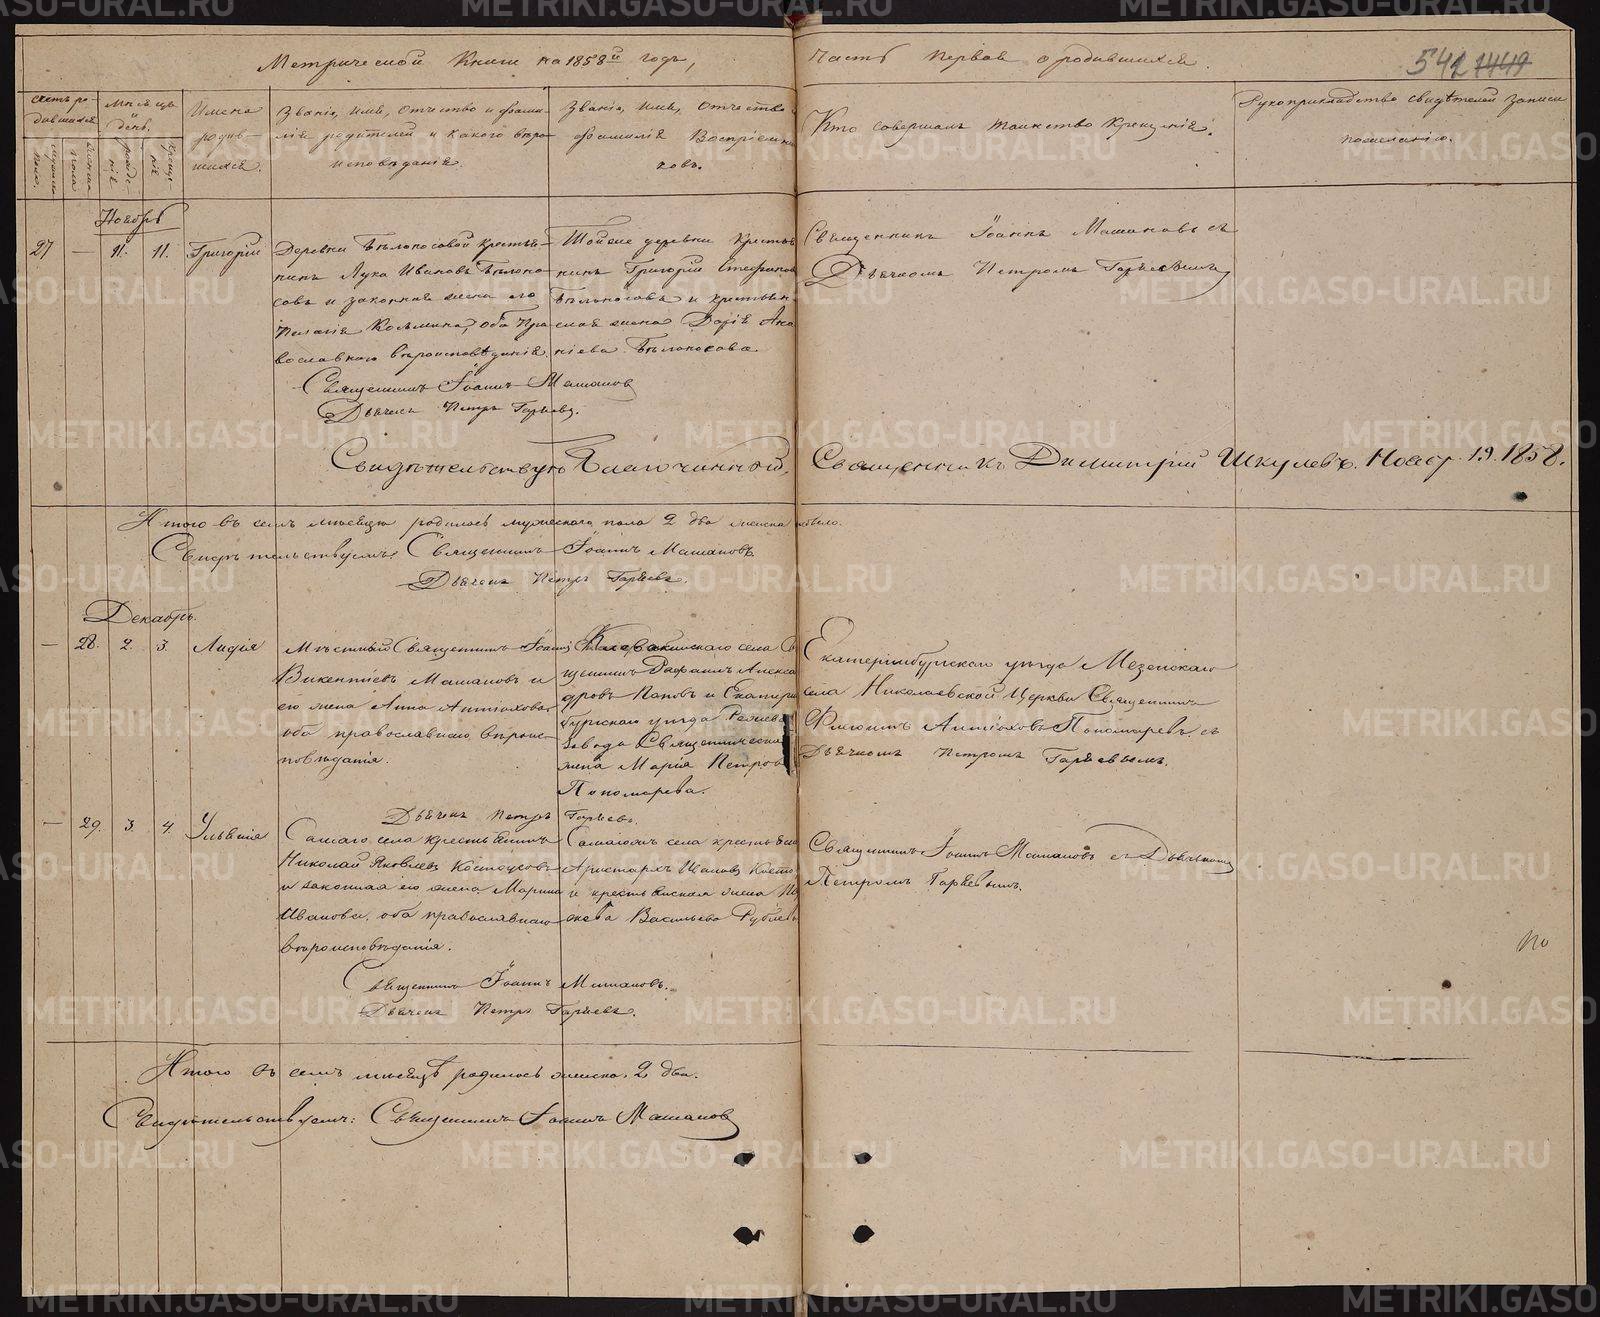 Метрической Книги на 1858й годъ,
Часть первая о родившихся.
542 1449
Счетъ ро-
дившихся
Мужеска
пола.
Женска
пола
Мѣсяцъ
и
день,
рожде-
нія
креще-
нія
Имена
родив-
шихся.
Званіе, имя, отчество и фами-
лія родителей и какого вѣро-
исповѣданія.
Званіе, имя, отчество
фамилія Воспріемни-
ковъ.
Кто совершалъ таинство Крещенія.
Рукоприкладство свидѣтелей записи
по желанію.
Ноябрь
27 — 11. 11. Григорій
Деревни Бѣлоносовой крестья-
нинъ Лука Ивановъ Бѣлоно-
совъ и законная жена его
Пелагія Козьмина, оба пра-
вославнаго вѣроисповѣданія.
Тойже деревни крестья-
нинъ Григорій Стефановъ
Бѣлоносовъ и крестьян-
ская жена Дарія Ана-
ніева Бѣлоносова.
Священникъ Іоаннъ Машановъ съ
Дьячкомъ Петромъ Гаряевымъ
Священникъ Іоаннъ Машановъ
Дьячекъ Петръ Гаряевъ.
Свидѣтельствую Благочинный, Священникъ Димитрій Шкулевъ. Ноябр. 19. 1858.
Итого въ семъ мѣсяцѣ родилось мужескаго пола 2 два женска небыло.
Свидѣтельствуемъ: Священникъ Іоаннъ Машановъ
Дьячекъ Петръ Гаряевъ.
Декабрь.
— 28. 2. 3. Лидія
Мѣстный Священникъ Іоаннъ
Викентіевъ Машановъ и
его жена Анна Антіохова
оба православнаго вѣроис-
повѣданія.
Клевакинскаго села Свя-
щенникъ Рафаилъ Алекса-
дровъ Поповъ и Екатерин-
бургскаго уѣзда Режевск
завода Священническая
жена Марія Петрова
Пономарева.
Екатеринбургскаго уѣзда Мезенскаго
села Николаевской Церкви Священникъ
Антіоховъ Пономаревъ съ
Дьячкомъ Петромъ Гаряевымъ.
Дьячекъ Петръ Гаряевъ.
— 29. 3. 4. Ульянія
Самаго села крестьянинъ
Николай Яковлевъ Костоусовъ
и законная его жена Марина
Иванова, оба православнаго
вѣроисповѣданія.
Самагожъ села крестьянин
Аристархъ Ивановъ Косто
и крестьянская жена
Васильева Рублева
Священникъ Іоаннъ Машановъ съ Дьячкомъ
Петромъ Гаряевымъ.
Священникъ Іоаннъ Машановъ.
Дьячекъ Петръ Гаряевъ.
Итого въ семъ мѣсяцѣ родилось женска. 2 два.
Свидѣтельствуемъ: Священникъ Іоаннъ Машановъ